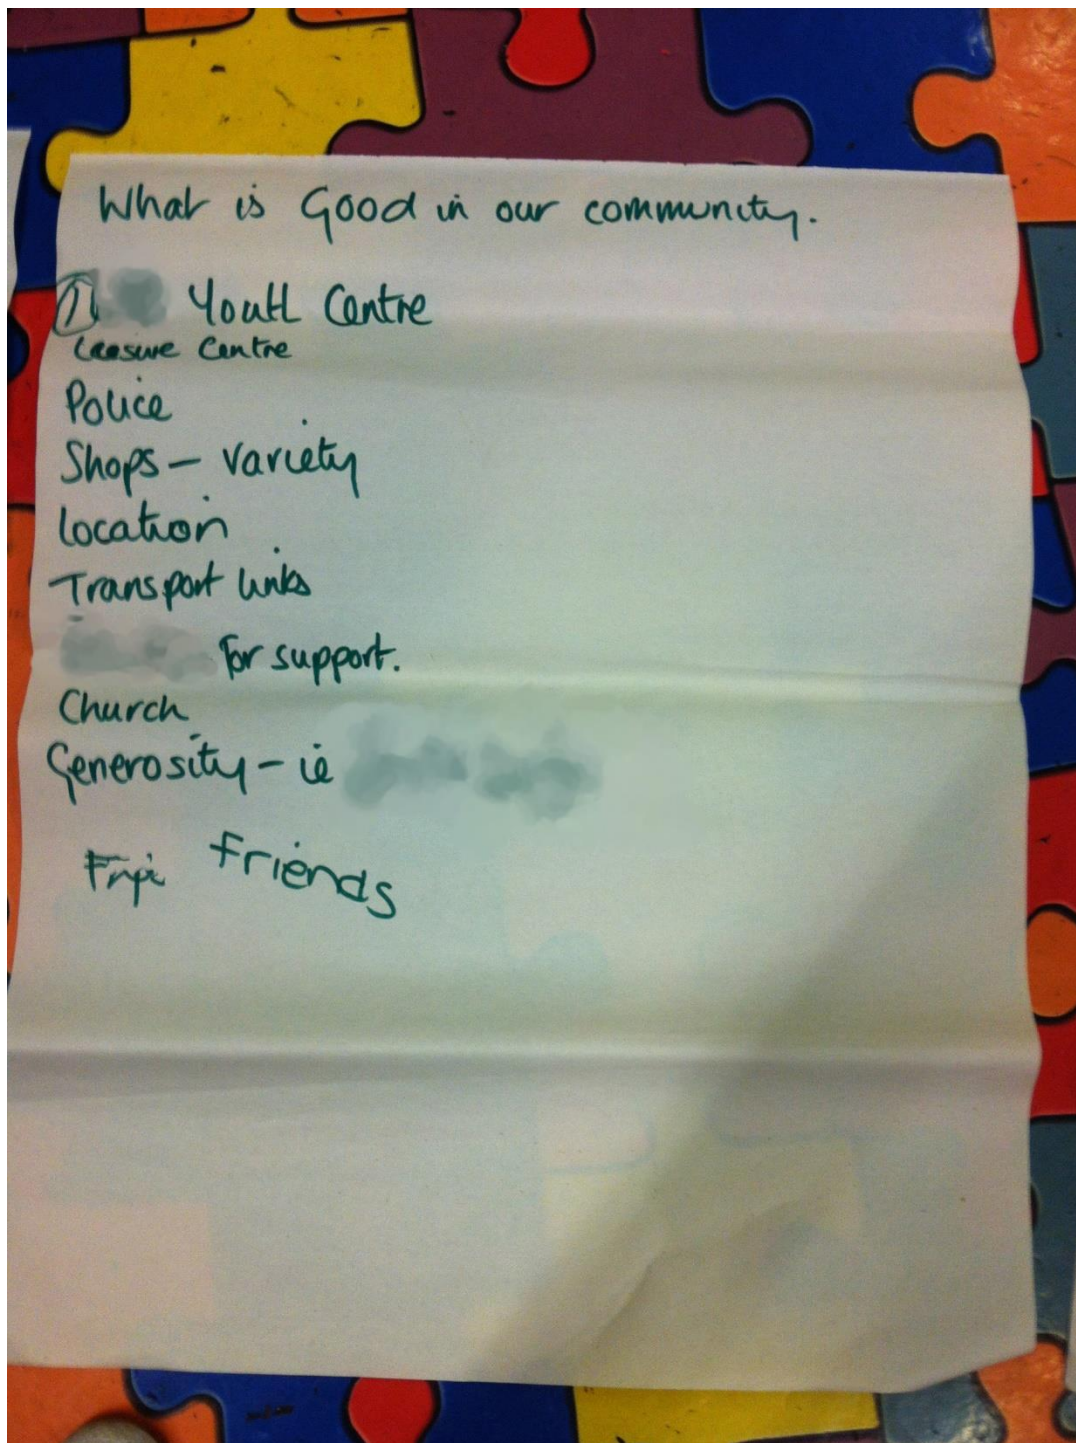 What is Good in our community.
1 Youth Centre
Leasure Centre
Police
Shops - variety
Location
Transport links
for support.
Church
Generosity - ie
friends